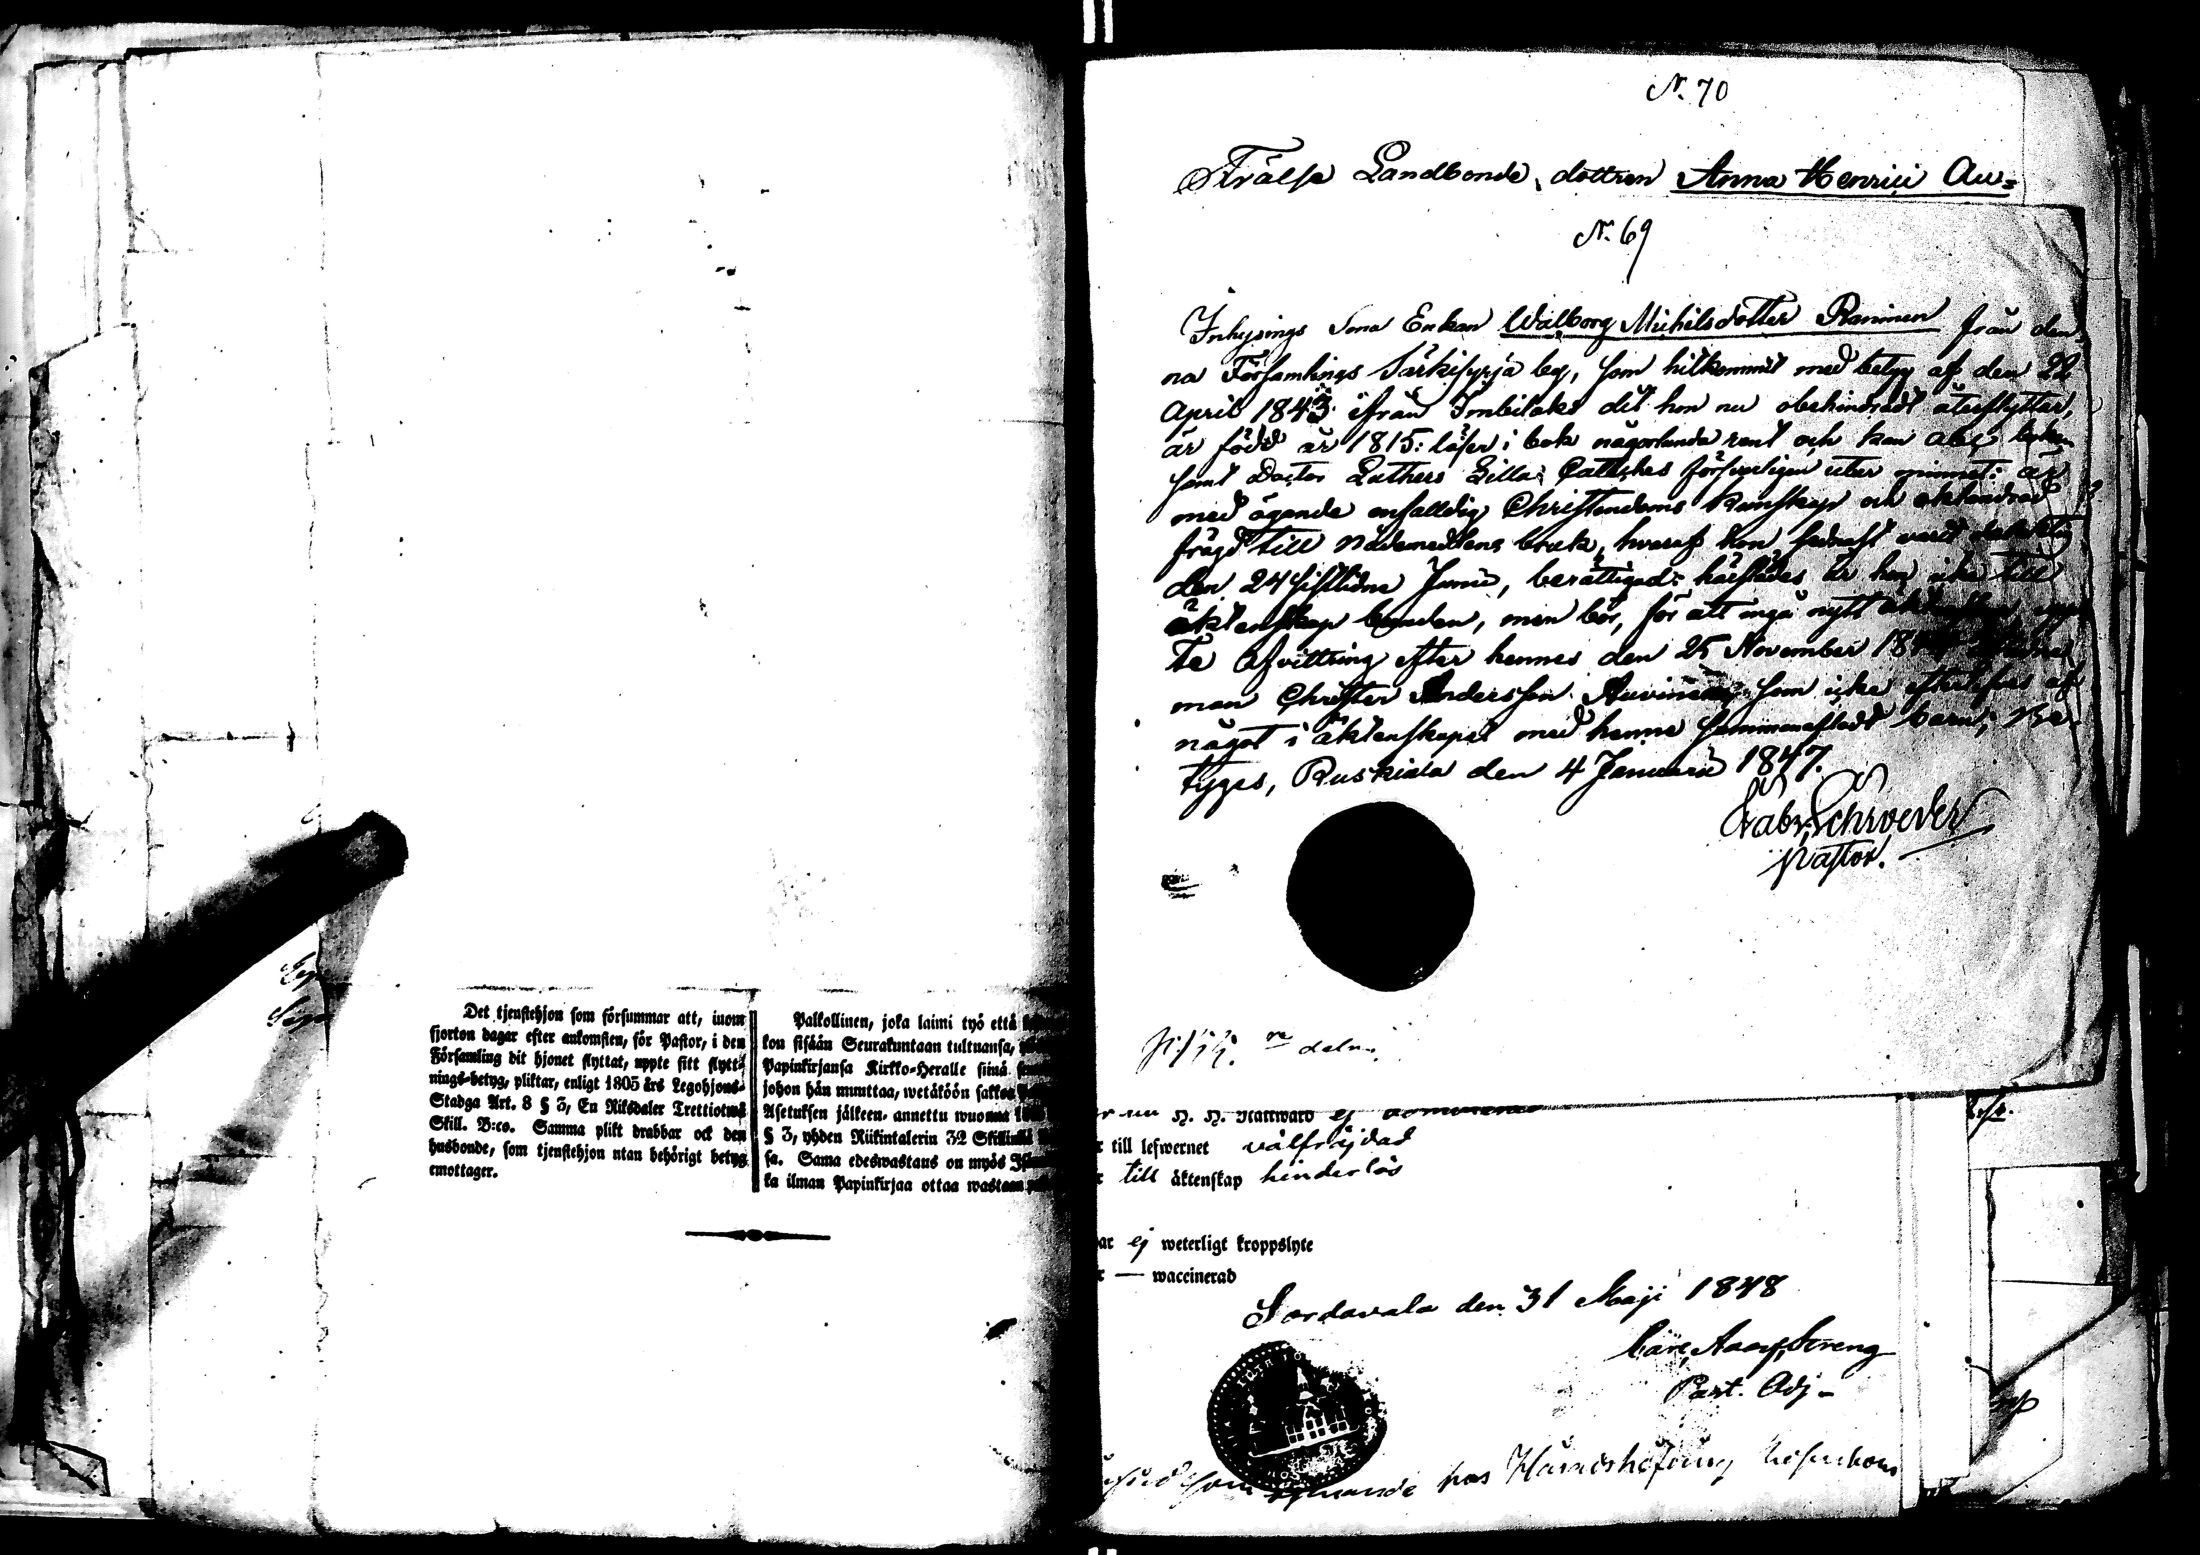 Det tjenstehjon som försummar att, inom
fjorton dagar efter ankomsten, för Pastor, i den
Församling dit hjonet flyttat, uppte sitt flytt-
nings-betyg, pliktar, enligt 1805 års Legohjons-
Stadga Art. 8 § 3, En Riksdaler Trettiotwå
Skill. B:co. Samma plikt drabbar ock den
husbonde, som tjenstehjon utan behörigt betyg
emottager.
Palkollinen, joka laimi työ että
kon sisään Seurakuntaan tultuansa,
Papinkirjansa Kirkko-Heralle siinä
johon hän muuttaa, wetäköön sakkoa
Asetuksen jälkeen, annettu wuonna
§ 3, yhden Riikintalerin 32 Skillinkiä
sa. Sama edeswastaus on myös
ta ilman Papinkirjaa ottaa wastaan
N. 70
Frälse Landbonde dottren Anna Henrici Au=
N. 69
Inhysings Enkan Walborg Michelsdotter Raninen från den
na Församlings Särkisyrjä by, som hitkommit med betyg af den 22
April 1843 ifrån Imbilaks dit hon nu obehindradt återflyttar,
är född år 1815: läser i bok någorlunda rent och kan abc boken
samt Doctor Luthers Lilla Cateches försvarligen utur minnet: är
med ägande enfalldig Christendoms kunskap och oklandrad
frägd till nådemedlens bruk, hvaraf hon sednast varit delaktig
den 24 sistledne Junii, berättigad: härstädes är hon icke till
äktenskap bunden, men bör, för att ingå nytt äktenskap uppte
te afvittring efter hennes den 25 November
man Christer Andersson Auvinen som icke efterlefves af
något i äktenskapet med henne sammanafladt barn; Be-
tyges, Ruskiala den 4 Januarii 1847.
Gabr. Schroeder
Pastor.
H. H. Nattward ej
till lefwernet välfräjdad
till äktenskap hinderlös
ej weterligt kroppslyte
— waccinerad
Sordavala den 31 Maji 1848
Carl Streng
Past. Adj.
hos Häradshöfding